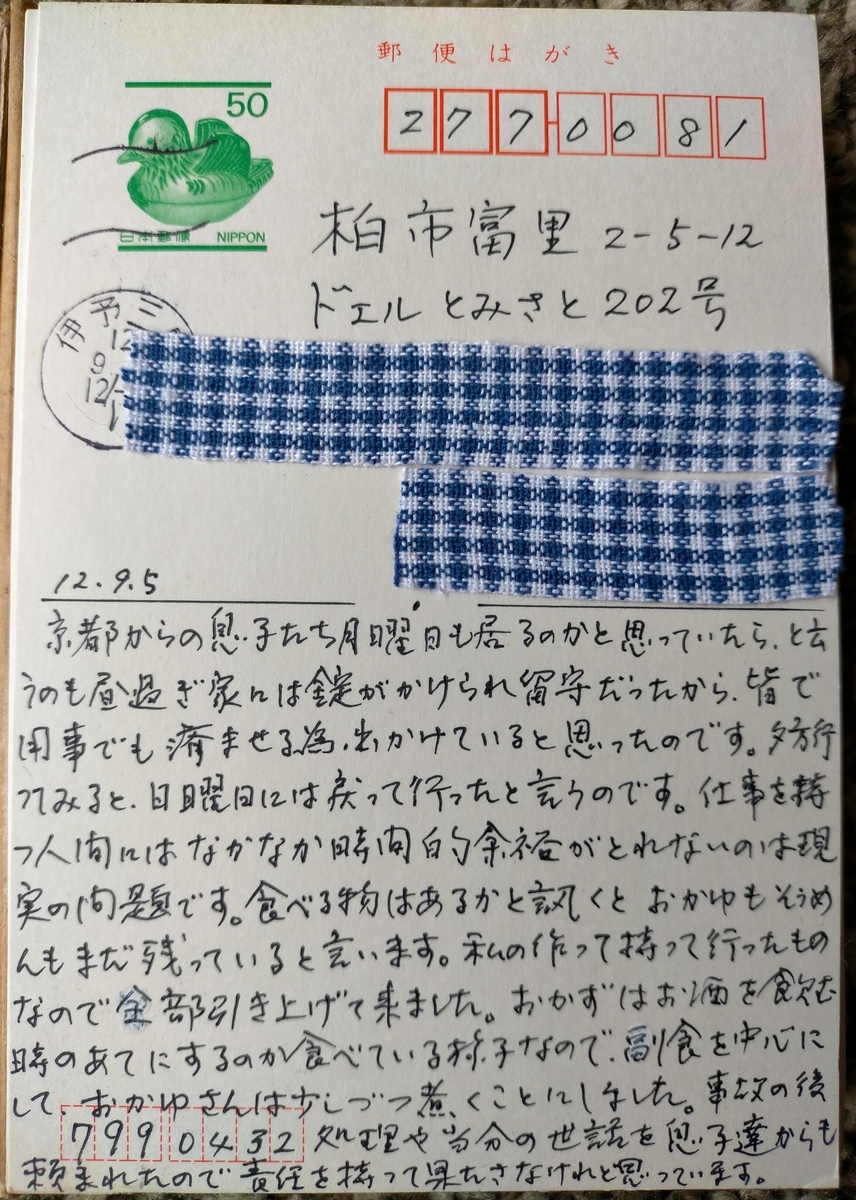 郵便はがき
50
277-0081
日本郵便 NIPPON
柏市富里 2-5-12
ドエルとみさと 202号
伊予三
12
9
12
12.9.5
京都からの息子たち月曜日も居るのかと思っていたら、と云
うのも昼過ぎ家には錠がかけられ留守だったから、皆で
用事でも済ませる為、出かけていると思ったのです。夕方行
ってみると、日曜日には戻って行ったと言うのです。仕事を持
つ人間にはなかなか時間的余裕がとれないのは現
実の問題です。食べる物はあるかと訊くと おかゆもそうめ
んもまだ残っていると言います。私の作って持って行ったもの
なので全部引き上げて来ました。おかずはお酒を飲む
時のあてにするのか食べている様子なので、副食を中心に
して、おかゆさんは少しづつ煮くことにしました。事故の後
7990432 処理や当分の世話を息子達からも
頼まれたので責任を持って果たさなけれと思っています。